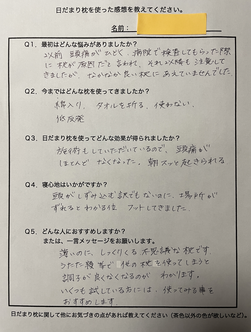 日だまり枕を使った感想を教えてください。
名前：
Q1．最初はどんな悩みがありましたか？
以前 頭痛がひどく、病院で検査してもらった際
に枕が原因だと言われ、それ以降も注意して
きましたが、なかなか良い枕にあえていませんでした。
Q2．今まではどんな枕を使ってきましたか？
綿入り、タオルを折る、使わない、
低反発
Q3．日だまり枕を使ってどんな効果が得られましたか？
施術もしていただいているので、頭痛が
ほとんどなくなった。朝スッと起きられる
Q4．寝心地はいかがですか？
頭がしずみ込む訳でもないのに、場所が
ずれるとわかる位 フィットしてきました。
Q5．どんな人におすすめしますか？
または、一言メッセージをお願いします。
薄いのに、しっくりくる不思議な枕です
うたた寝等で他の枕を使ってしまうと
調子が良くなくなるのがわかります。
いくつも試している方には、使ってみる事を
おすすめします
日だまり枕に関して他にお気づきの点があれば教えてください（茶色以外の色が欲しいなど）